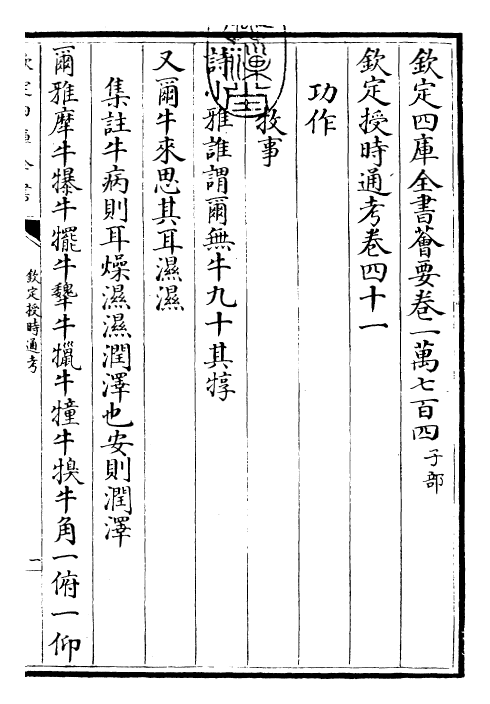 欽定四庫全書薈要卷一萬七百四 子部
欽定授時通考卷四十一
功作
牧事
詩小雅誰謂爾無牛九十其犉
又爾牛來思其耳濕濕
集註牛病則耳燥濕濕潤澤也安則潤澤
爾雅摩牛犦牛犤牛犩牛犣牛犝牛犑牛角一俯一仰
欽定授時通考
一